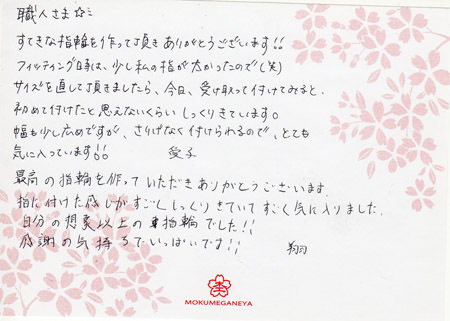 職人さま☆ミ
すてきな指輪を作って頂きありがとうございます!!
フィッティング時は、少し私の指が太かったので(笑)
サイズを直して頂きましたら、今日、受け取って付けてみると、
初めて付けたと思えないくらいしっくりきています。
幅も少し広めですが、さりげなく付けられるので、とても
気に入っています!! 愛子
最高の指輪を作っていただきありがとうございます。
指に付けた感じがすごくしっくりきていてすごく気に入りました。
自分の想象以上の指輪でした!!
感謝の気持ちでいっぱいです!! 翔
MOKUMEGANEYA